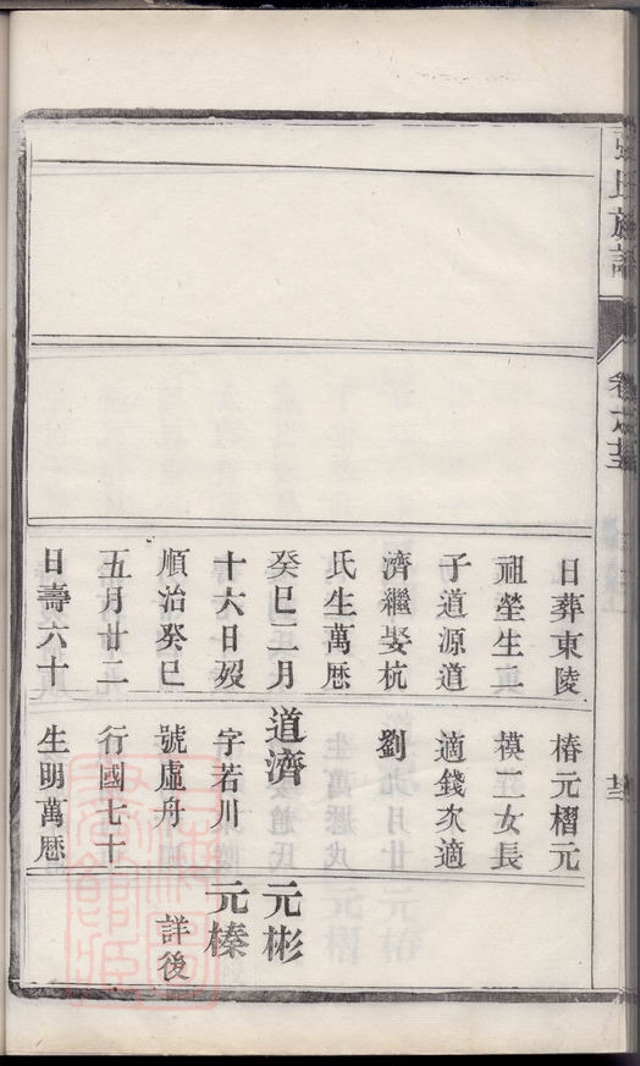 張氏族譜
卷六之
日葬東陵
祖塋生二
子道源道
濟繼娶杭
氏生萬厯
癸巳二月
十六日歿
順治癸巳
五月廿二
日壽六十
椿元榴元
模二女長
適錢次適
劉
道濟
字若川
號虛舟
行國七十
生明萬厯
元彬
元榛
詳後